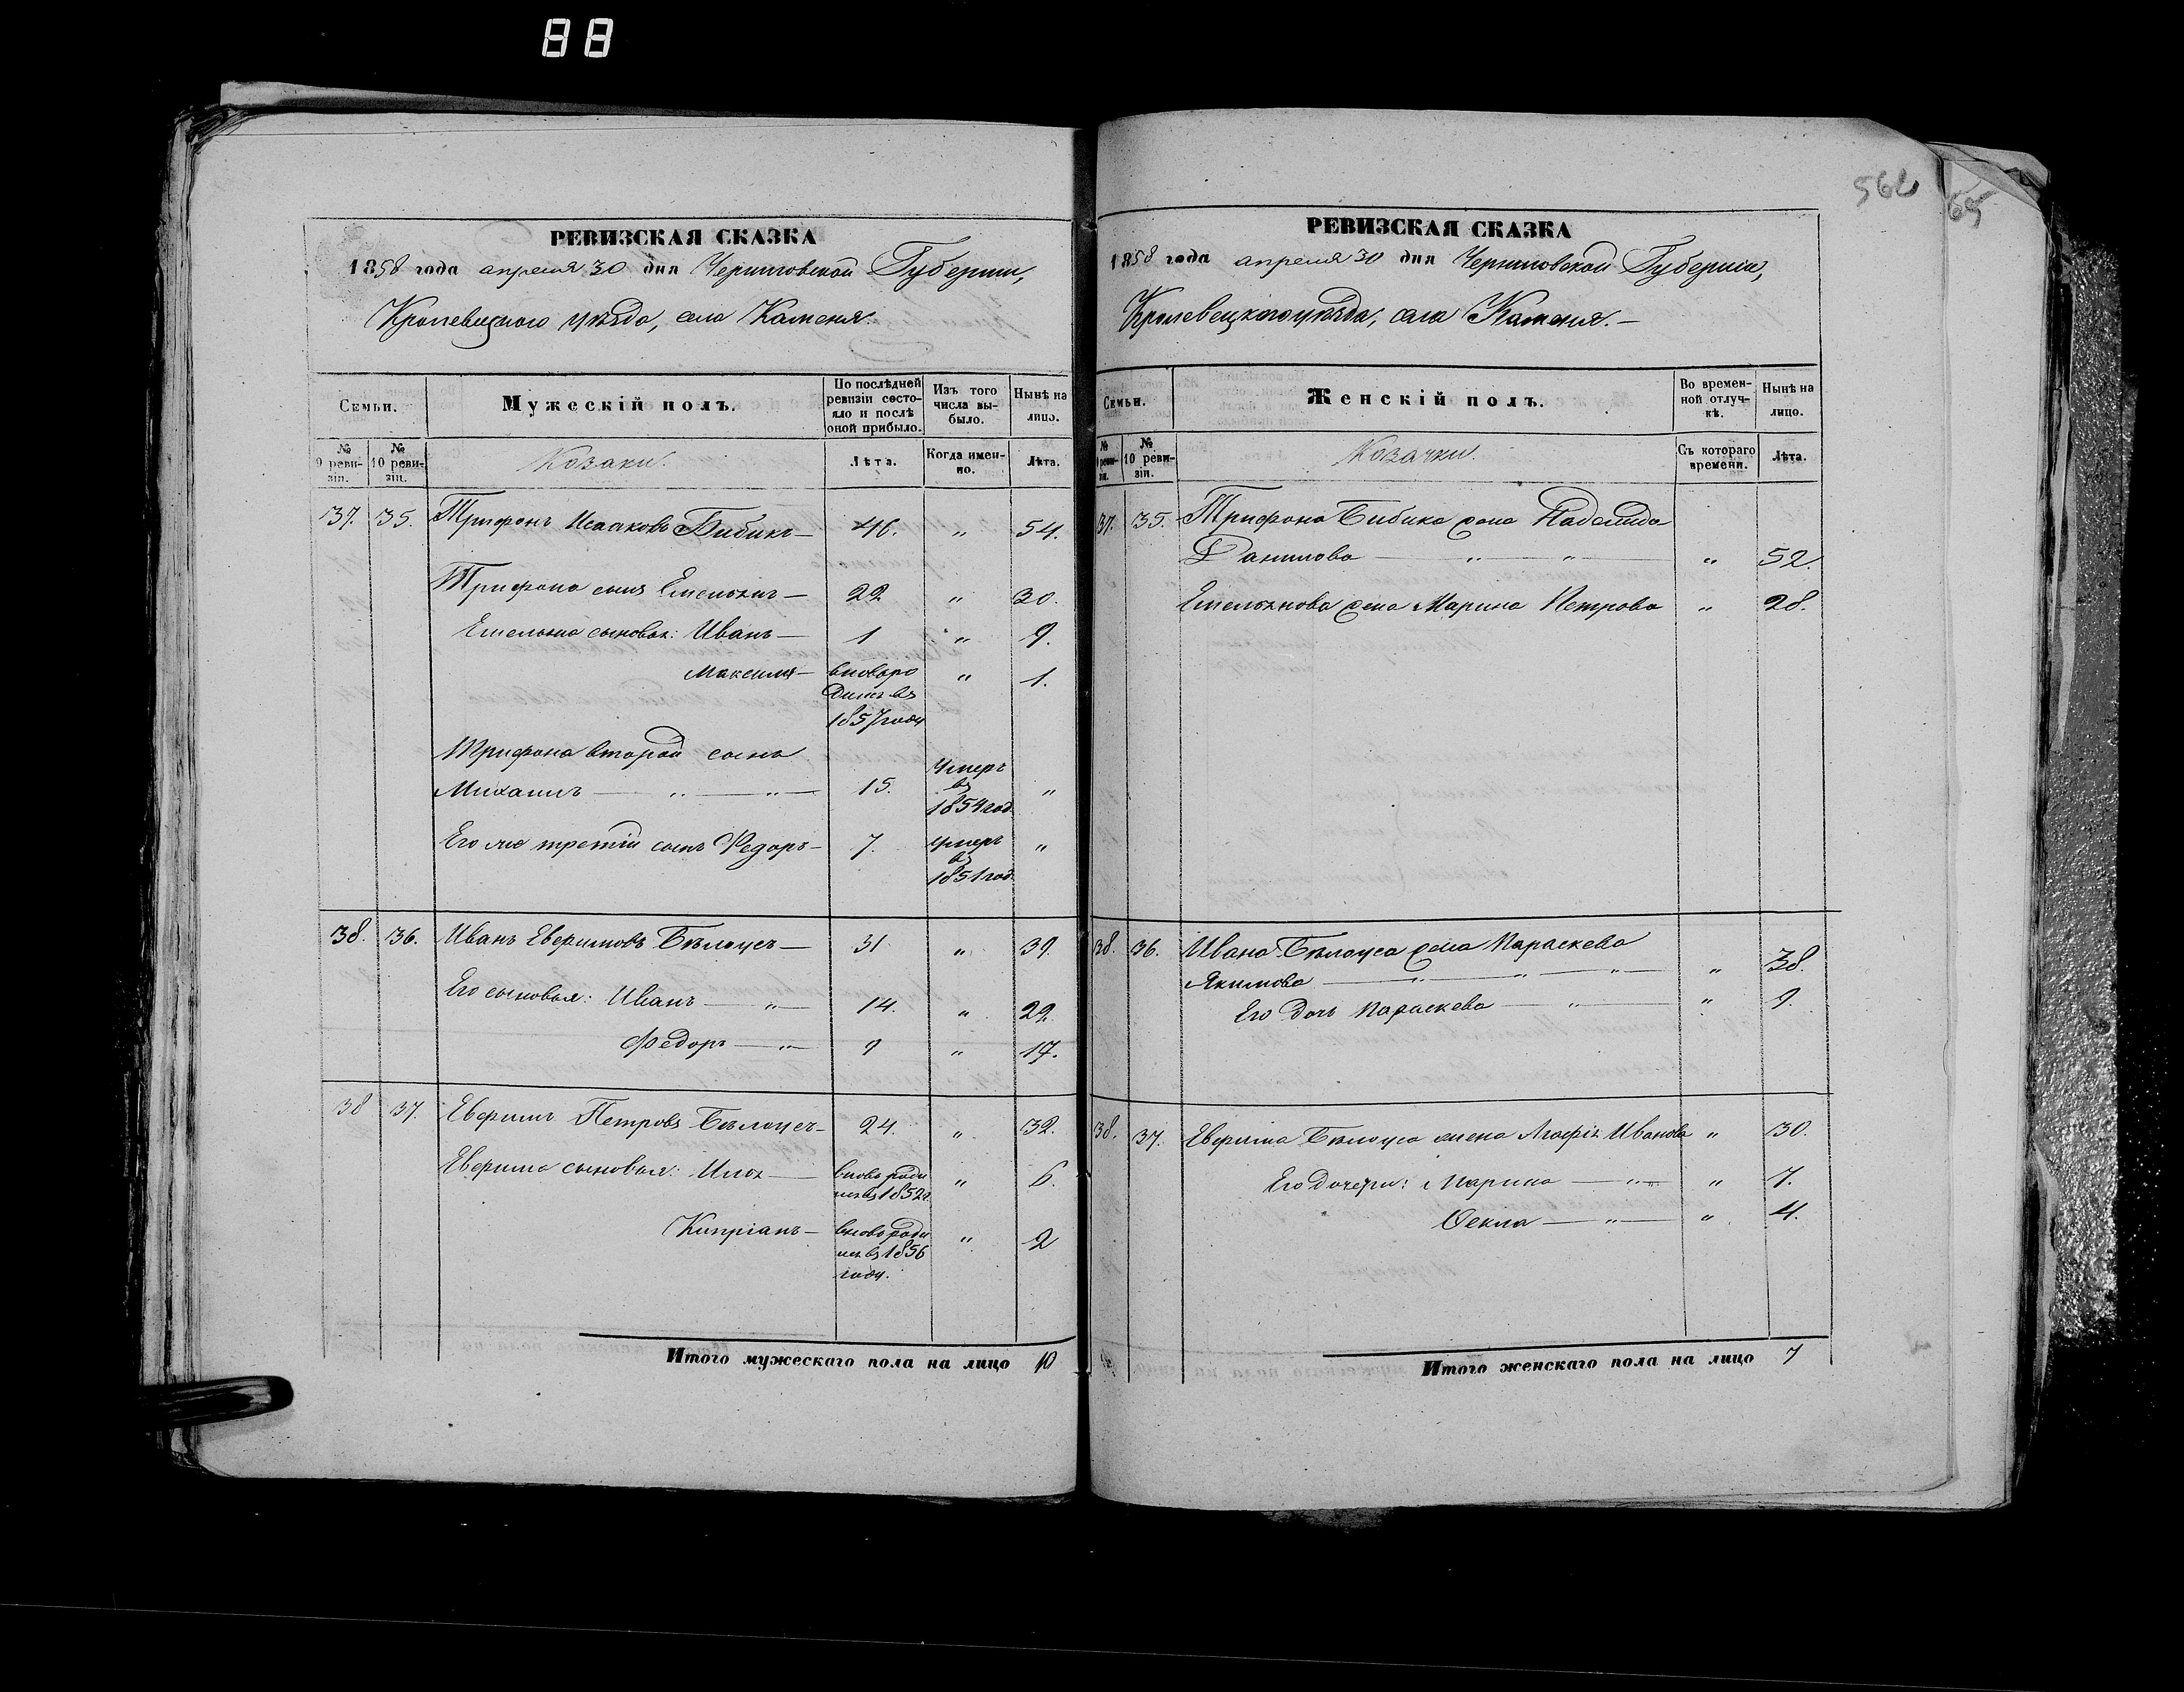 88
562
65
РЕВИЗСКАЯ СКАЗКА
1858 года апреля 30 дня Черниговской Губернии,
Кролевецкого уѣзда, села Каменя.
Семьи.
Мужескій полъ.
По послѣдней ревизіи состояло и послѣ оной прибыло.
Изъ того числа выбыло.
Нынѣ на лицо.
№ 9 ревизіи.
№ 10 ревизіи.
Козаки.
Лѣта.
Когда именно.
Лѣта.
37. 35. Трифонъ Исааковъ Бибикъ — 46. " 54.
Трифона сынъ Емельянъ — 22 " 30.
Емельяна сыновья: Иванъ — 1 " 9.
Максимъ — вновь родил. въ 1857 году " 1.
Трифона второй сынъ
Михаилъ — " — " — 15. Умеръ въ 1854 год. "
Его же третій сынъ Федоръ — 7. умеръ въ 1851 год. "
38. 36. Иванъ Евфимовъ Бѣлоусъ — 31 " 39.
Его сыновья: Иванъ — " — 14. " 22.
Федоръ — " — 9 " 17.
38 37. Евфимъ Петровъ Бѣлоусъ — 24. " 32.
Евфима сыновья: Илья — вновь родился въ 1852 г. " 6.
Кипріанъ — вновь родился въ 1856 году. " 2
Итого мужескаго пола на лицо 10
РЕВИЗСКАЯ СКАЗКА
1858 года апреля 30 дня Черниговской Губерніи,
Кролевецкого уѣзда, села Каменя. —
Семьи.
Женскій полъ.
Во временной отлучкѣ.
Нынѣ на лицо.
№ 9 ревизіи.
№ 10 ревизіи.
Козачки.
Съ котораго времени.
Лѣта.
37. 35. Трифона Бибика жена Надежда
Данилова — " — " — " 52.
Емельянова жена Марина Петрова " 28.
38. 36. Ивана Бѣлоуса жена Параскева
Якимова — " — " — " — " 38.
Его дочь Параскева — " — " 9.
38. 37. Евфима Бѣлоуса жена Агафія Иванова " 30.
Его дочери: Марина — " — " 7.
Ѳекла — " — " 4.
Итого женскаго пола на лицо 7